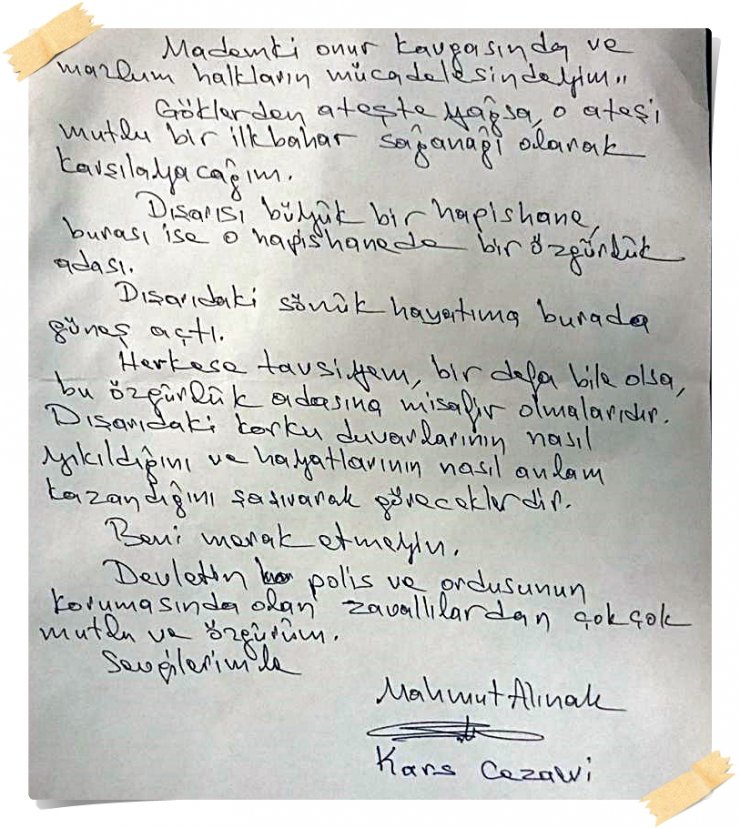 Mademki onur kavgasında ve
mazlum halkların mücadelesindeyim..
Göklerden ateşte yağsa, o ateşi
mutlu bir ilkbahar sağanağı olarak
karşılayacağım.
Dışarısı büyük bir hapishane,
burası ise o hapishanede bir özgürlük
adası.
Dışarıdaki sönük hayatıma burada
güneş açtı.
Herkese tavsiyem, bir defa bile olsa,
bu özgürlük adasına misafir olmalarıdır.
Dışarıdaki korku duvarlarının nasıl
yıkıldığını ve hayatlarının nasıl anlam
kazandığını şaşırarak göreceklerdir.
Beni merak etmeyin.
Devletin polis ve ordusunun
korumasında olan zavallılardan çok çok
mutlu ve özgürüm.
Sevgilerimle
Mahmut Alınak
Kars Cezaevi